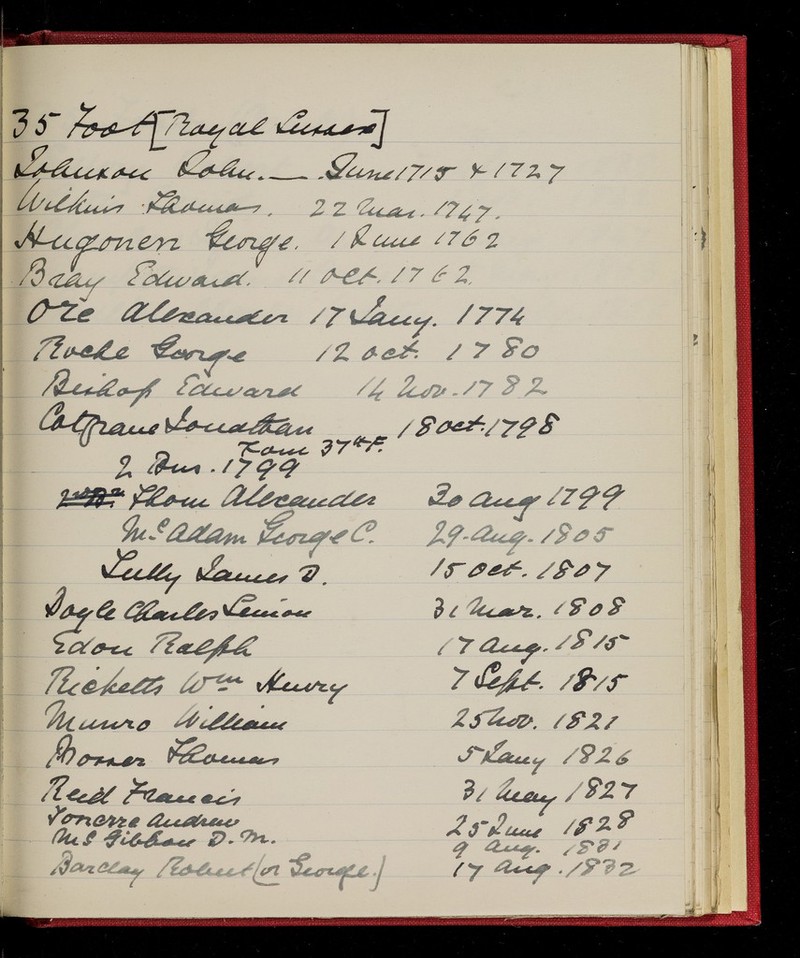 35 Foot [Royal Sussex]
Johnson John. — June 1715 & 1727
Wilkins Thomas. 22 Mar. 1747.
Hugonen George. 1 June 1762
Bray Edward. 11 Oct. 1762.
Ore Alexander 17 Jany. 1774
Roche George 12 Oct. 1780
Bishop Edward 14 Nov. 1782
Coltrane Jonathan 18 Oct. 1798
From 37th F.
2 Bns. 1799
Thom Alexander 30 Aug 1799
McAdam George C. 29. Aug. 1805
Tully James D. 15 Oct. 1807
Doyle Charles Simon 31 Mar. 1808
Edon Ralph 17 Aug. 1815
Ricketts Wm Henry 7 Sept. 1815
Munro William 25 Nov. 1821
Prosser Thomas 5 Jany 1826
Reid Francis 31 May 1827
Andrew 25 June 1828
McGibbon D. M. 9 Aug. 1831
Barclay Robert (or George.) 17 Aug. 1832